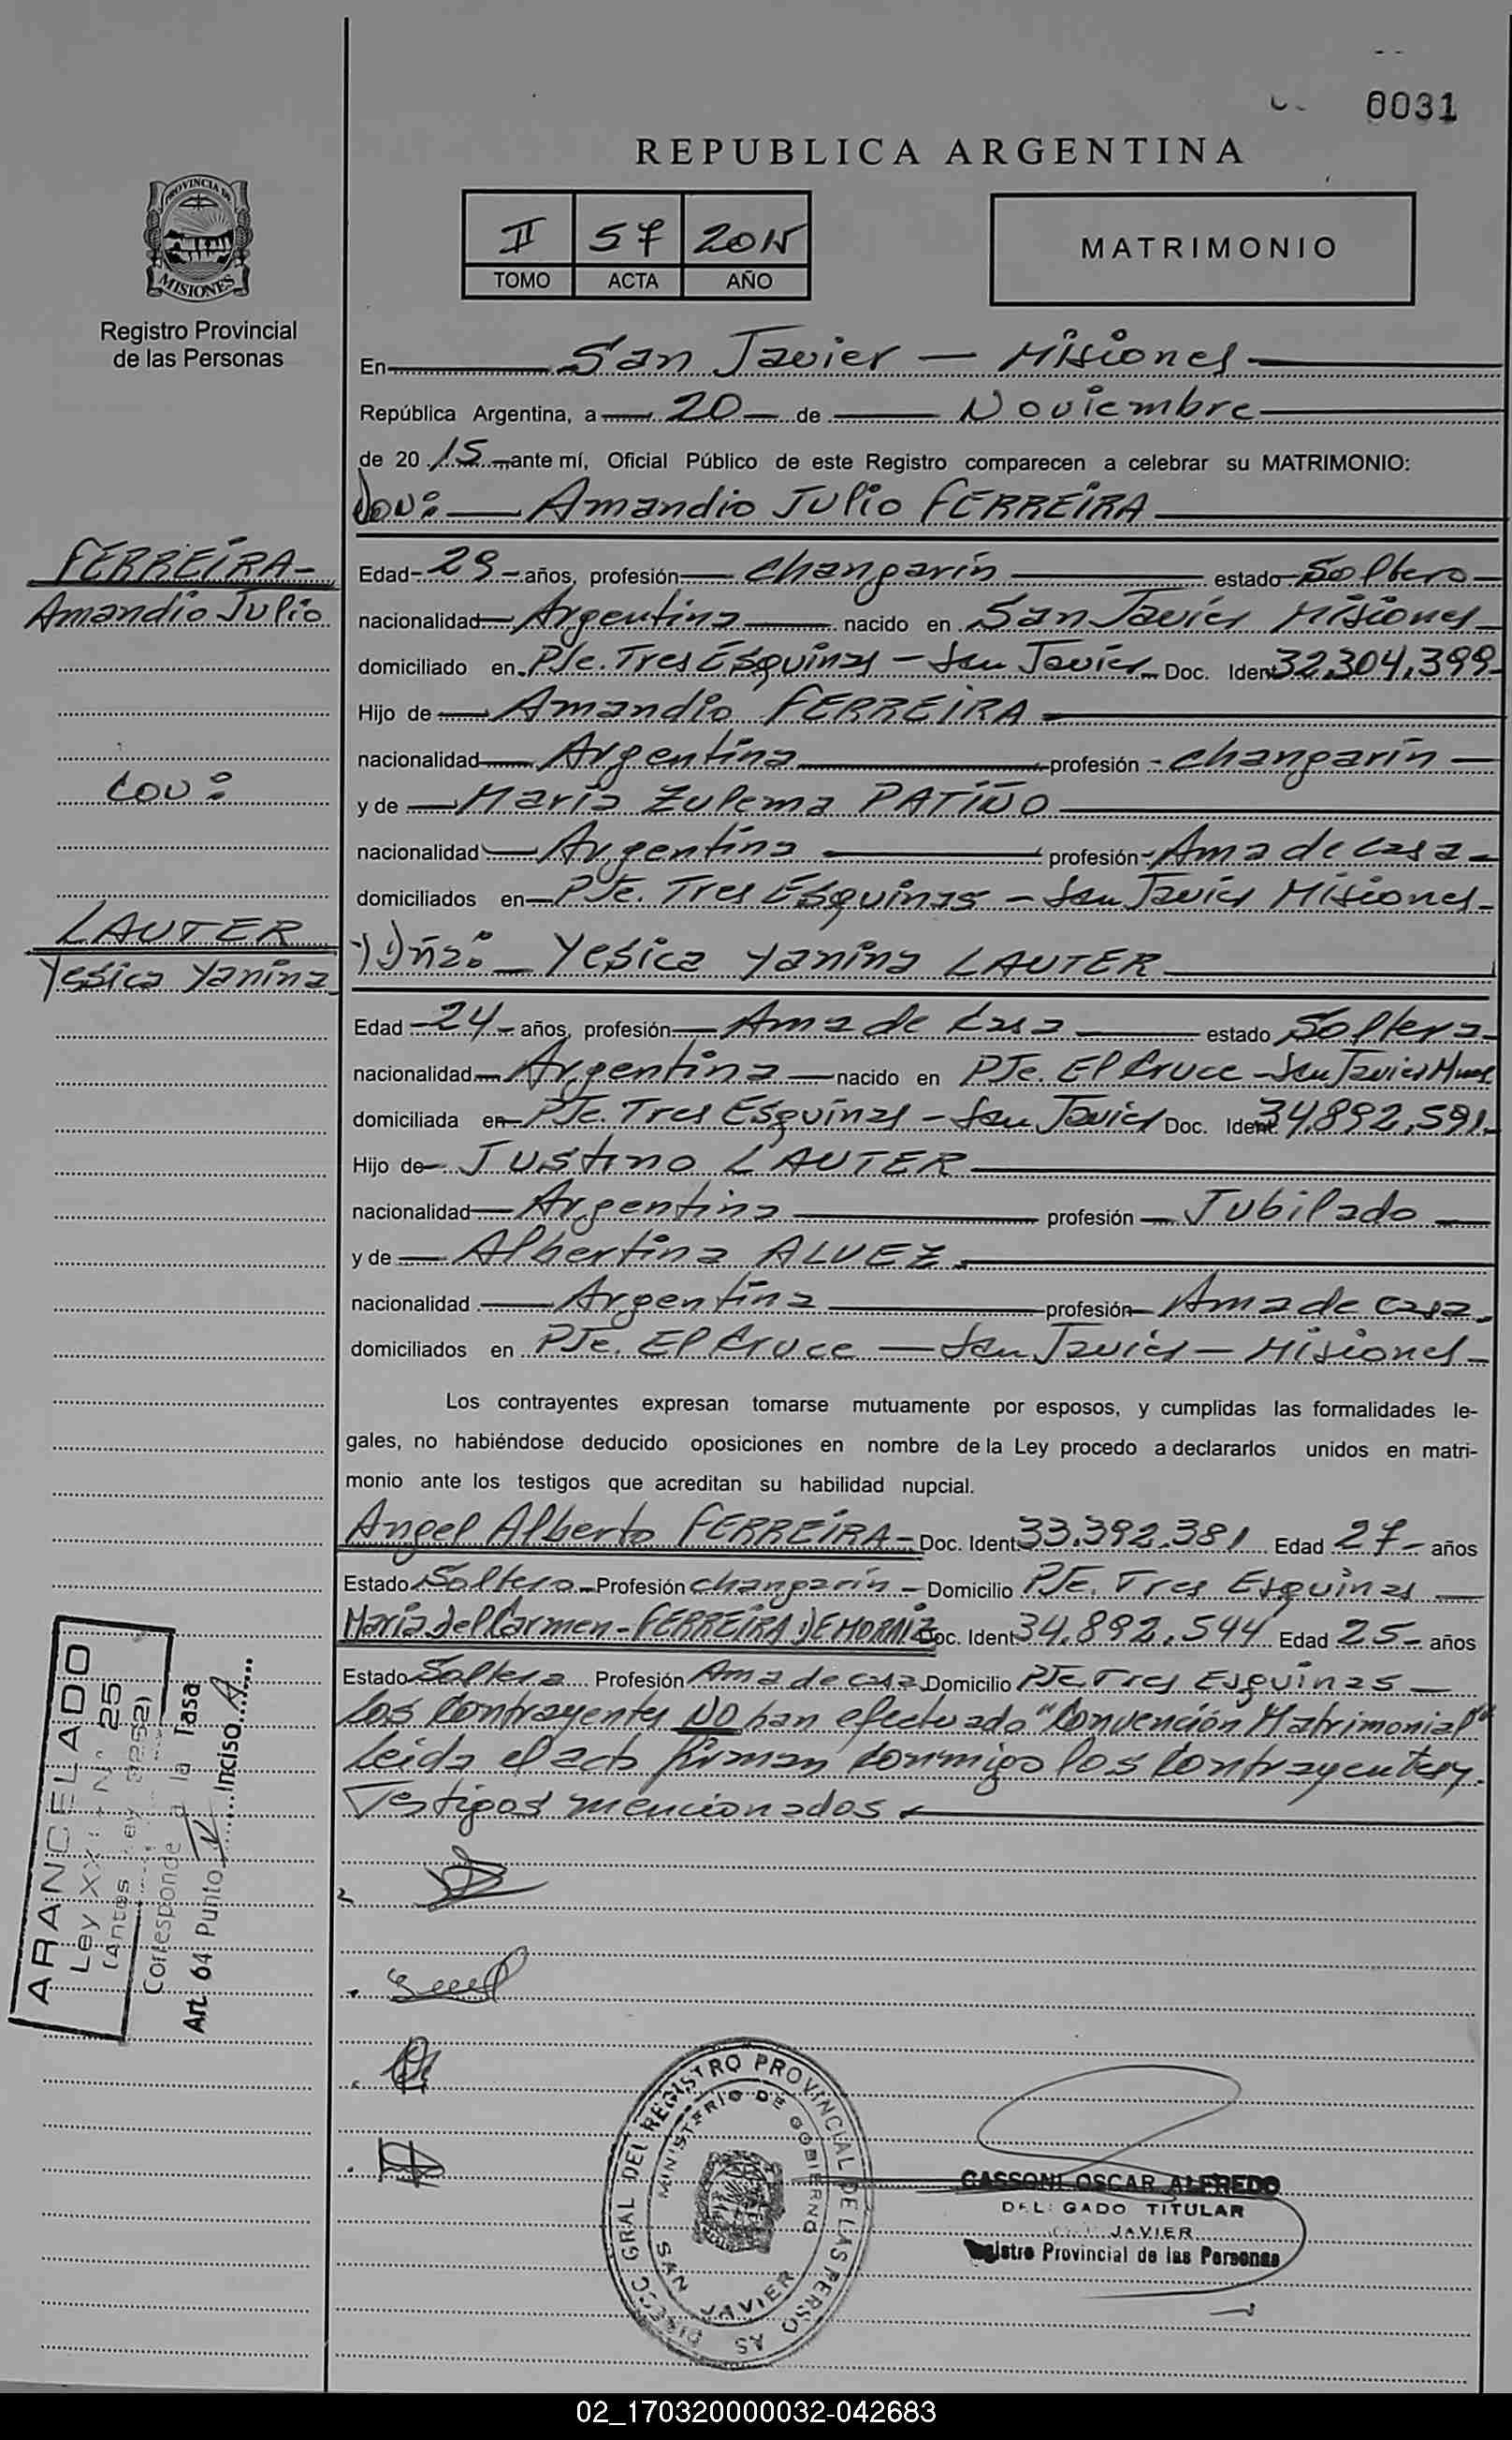 0031
REPUBLICA ARGENTINA
PROVINCIA DE
MISIONES
Registro Provincial
de las Personas
II 57 2015
TOMO ACTA AÑO
MATRIMONIO
En San Javier - Misiones
República Argentina, a 20 de Noviembre
de 2015 ante mí, Oficial Público de este Registro comparecen a celebrar su MATRIMONIO:
Don: Amandio Julio FERREIRA
FERREIRA-
Amandio Julio
Con:
LAUTER
Yesica Yanina
Edad 29 años, profesión Changarín estado Soltero
nacionalidad Argentina nacido en San Javier Misiones
domiciliado en PJe. Tres Esquinas - San Javier Doc. Ident 32.304.399
Hijo de Amandio FERREIRA
nacionalidad Argentina profesión Changarín
y de María Zulema PATIÑO
nacionalidad Argentina profesión Ama de casa
domiciliados en PJe. Tres Esquinas - San Javier Misiones
y Dña: Yesica Yanina LAUTER
Edad 24 años, profesión Ama de Casa estado Soltera
nacionalidad Argentina nacido en PJe. El Cruce - San Javier Mnes
domiciliada en PJe. Tres Esquinas - San Javier Doc. Ident. 34.892.591
Hijo de Justino LAUTER
nacionalidad Argentina profesión Jubilado
y de Albertina ALVEZ
nacionalidad Argentina profesión Ama de casa
domiciliados en PJe. El Cruce - San Javier - Misiones
Los contrayentes expresan tomarse mutuamente por esposos, y cumplidas las formalidades le-
gales, no habiéndose deducido oposiciones en nombre de la Ley procedo a declararlos unidos en matri-
monio ante los testigos que acreditan su habilidad nupcial.
Angel Alberto FERREIRA - Doc. Ident 33.392.381 Edad 27 años
Estado Soltero Profesión Changarín - Domicilio PJe. Tres Esquinas
María del Carmen - FERREIRA DE MORAIZ Doc. Ident 34.892.544 Edad 25 años
Estado Soltera Profesión Ama de casa Domicilio PJe Tres Esquinas
Los Contrayentes NO han efectuado "Convención Matrimonial"
Leída el acta firman conmigo los Contrayentes y
Testigos mencionados
ARANCELADO
Ley XXII N° 25
(Antes Ley 3252)
Corresponde a la Tasa
Art. 64 Punto IV Inciso A
DIRECC GRAL DEL REGISTRO PROVINCIAL DE LAS PERSONAS
MINISTERIO DE GOBIERNO
SAN JAVIER
GASSONI OSCAR ALFREDO
DELEGADO TITULAR
JAVIER
Registro Provincial de las Personas
02_170320000032-042683